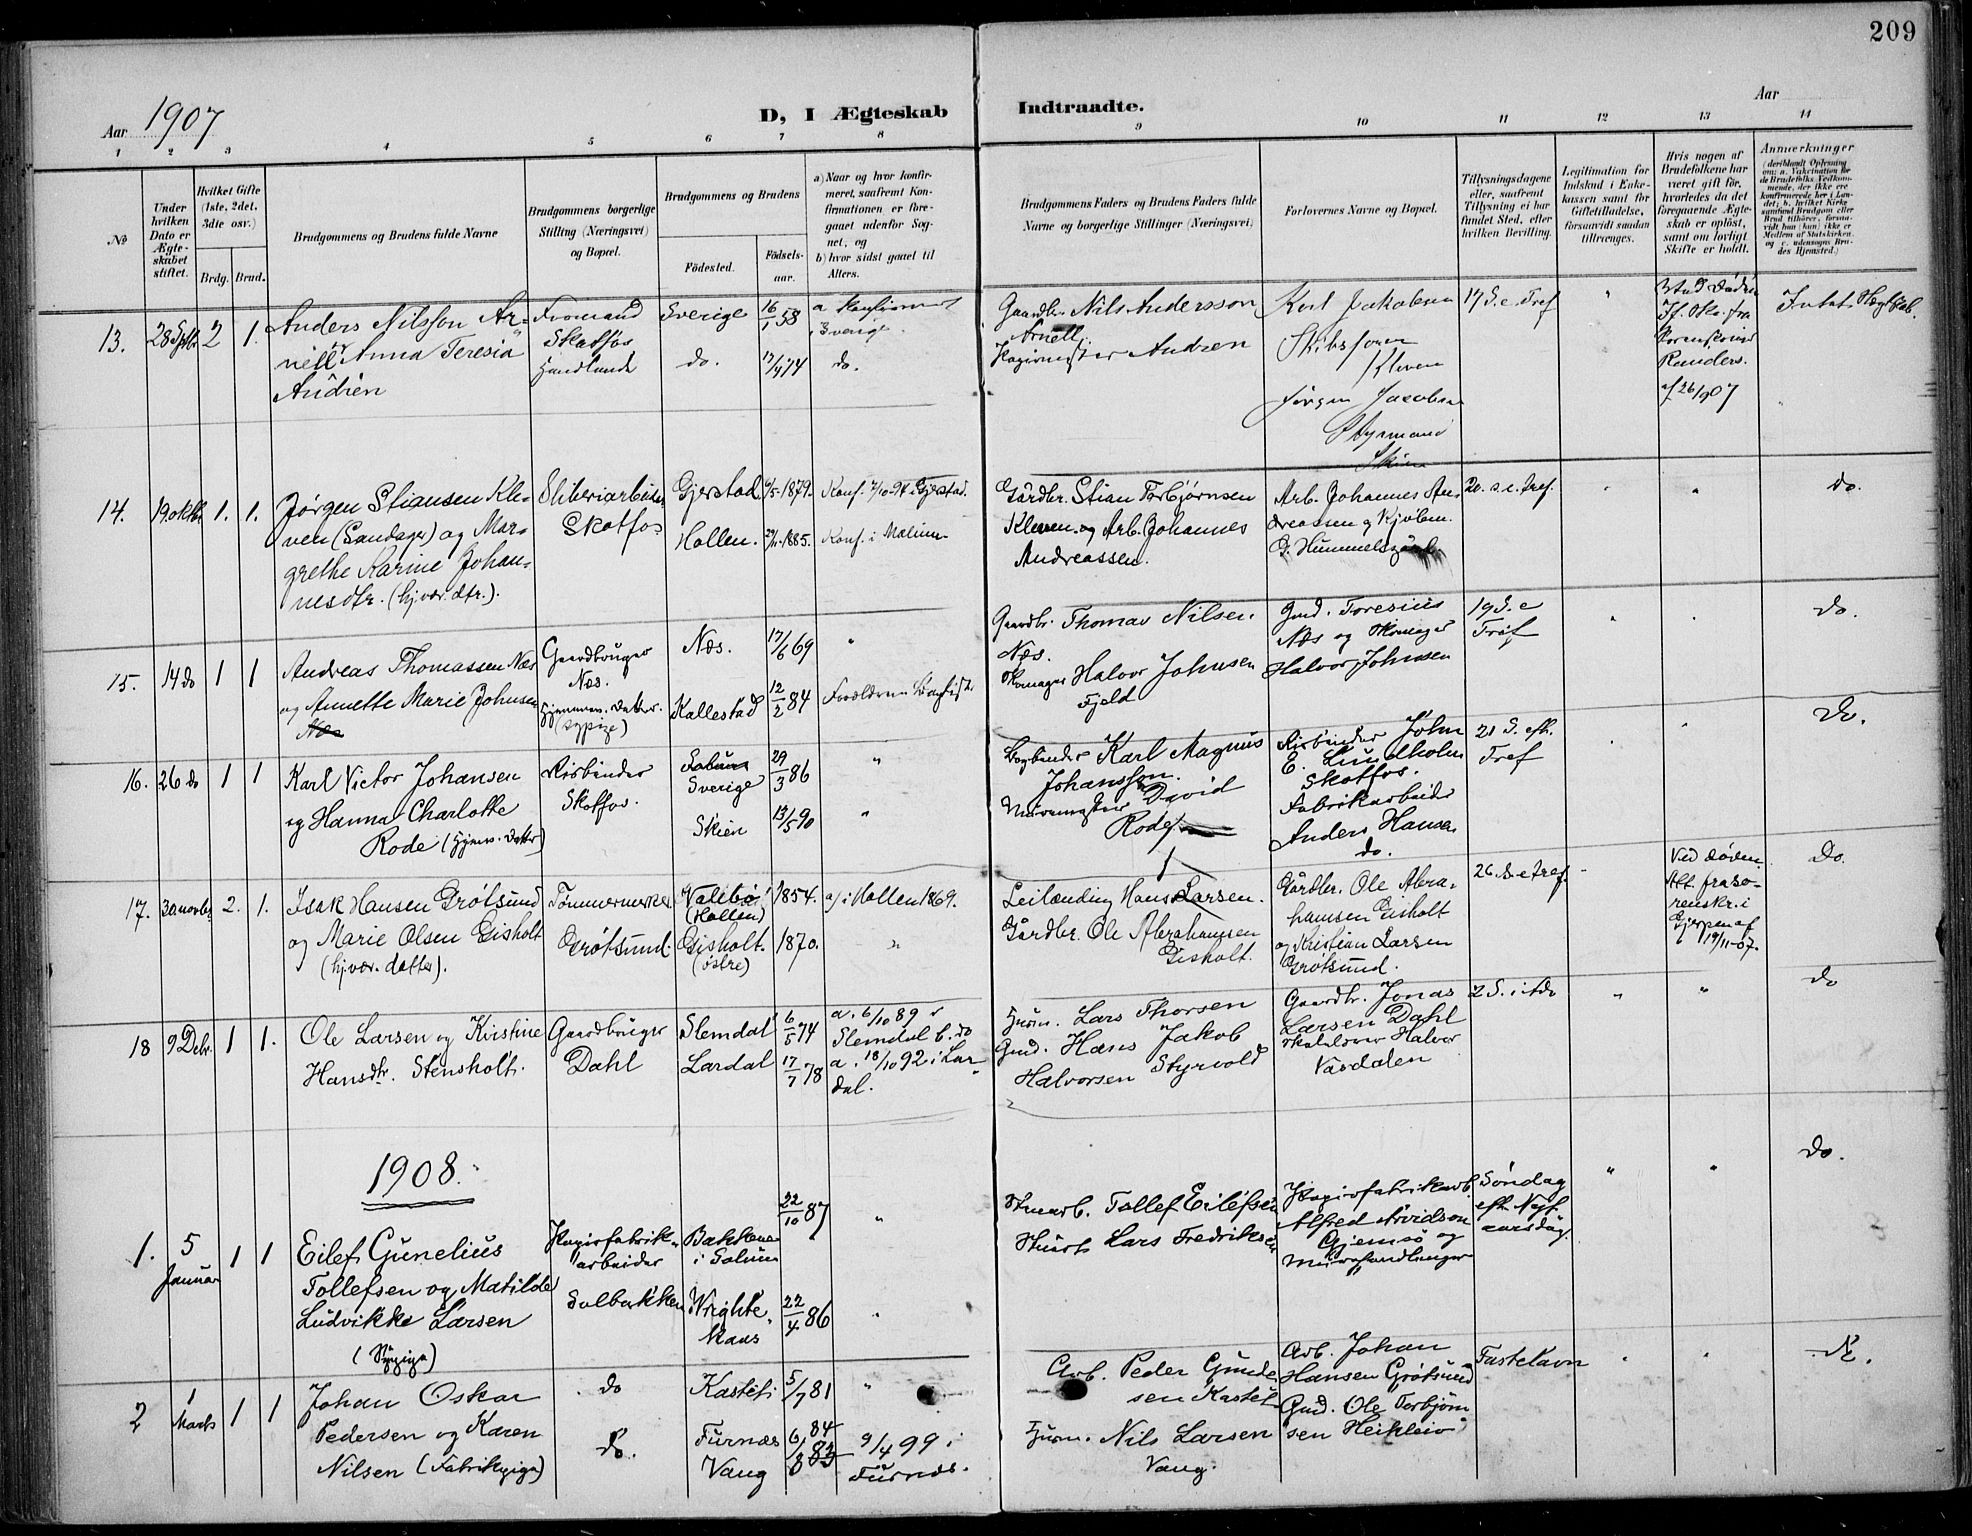 209
Aar 1907
D, I Ægteskab Indtraadte.
Aar
1 2 3 4 5 6 7 8 9 10 11 12 13 14
No
Under hvilken Dato er Ægteskabet stiftet.
Hvilket Gifte (1ste, 2det, 3die osv.)
Brdg. Brud.
Brudgommens og Brudens fulde Navne
Brudgommens borgerlige Stilling (Næringsvei) og Bopæl.
Brudgommens og Brudens
Fødested.
Fødsels-aar.
a) Naar og hvor konfir-
meret, saafremt Kon-
firmationen er fore-
gaaet udenfor Sog-
net, og
b) hvor sidst gaaet til
Alters.
Brudgommens Faders og Brudens Faders fulde
Navne og borgerlige Stillinger (Næringsvei)
Forlovernes Navne og Bopæl.
Tillysningsdagene
eller, saafremt
Tillysning ei har
fundet Sted, efter
hvilken Bevilling.
Legitimation for
Indskud i Enke-
kassen samt for
Giftetilladelse,
forsaavidt saadan
tiltrænges.
Hvis nogen af
Brudefolkene har
været gift før,
hvorledes da det
foregaaende Ægte-
skab er opløst,
samt om lovligt
Skifte er holdt.
Anmerkninger
13. 28 Sptbr 2 1.
Anders Nilsson Ar-
nell og Anna Teresia
Andrén
Formand
Skotfos
Sverige 16/1 58
do. 17/4 74
a Konfirmeret
i Sverige.
do.
Gaardbr. Nils Andersson
Arnell
Andrén
Karl Jakobsen
Kleven
Jørgen Jacobsen
Styrmand
Skien
17 S. e. Tref
26/907
14. 19. oktbr 1. 1.
Jørgen Stiansen Kle-
ven (Sandager) og Mar-
grethe Karine Johan-
nesdtr. (hj.vær. dtr.).
Sliberiarbeider
Skotfos
Gjerstad. 9/5-1879.
Hollen. 1885.
Konf. 7/10-94 i Gjerstad.
Konf. i Melum
Gårdbr. Stian Torbjørnsen
Kleven og Arb. Johannes
Andreassen.
Arb. Johannes An-
dreassen og Kjøbm.
G. Hummelsgård
20. s. e. tref.
do.
15. 14 do 1 1
Andreas Thomassen Næs
og Annette Marie Johnsen
Næs
Gaardbruger
Næs.
Hjemmev. Datter.
(sypige)
Næs. 17/6 69
Kallestad 12/2 84
Forældrene Baptist
Gaardbr. Thomas Nilsen
Næs.
Skomager Halvor Johnsen
Fjeld
Gmd. Toresius
Næs og Skomager
Halvor Johnsen
19 S. e
Tref
Do.
16. 26 do 1 1
Karl Victor Johansen
og Hanna Charlotte
Rode (hjemv. Datter)
Risbinder
Skotfos.
Solum
Sverige 29/3 86
Skien 13/5 90
Bogbinder Karl Magnus
Johansson.
Murermester David
Rode
Risbinder John
E. Lundholm
Skotfos.
Fabrikarbeider
Anders Hansen
do.
21 S. eft.
Tref
Do.
17. 30 novbr 2. 1.
Isak Hansen Grøtsund
og Marie Olsen Eisholt
(hj.vær. datter).
Tømmermerker
Grøtsund.
Valebø
(Hollen) 1854.
Eisholt.
(østre) 1870.
a) i Hollen 1869.
Leilænding Hans Larsen.
Gårdbr. Ole Abrahamsen
Eisholt.
Gårdbr. Ole Abra-
hamsen Eisholt
og Kristian Larsen
Grøtsund.
26. s. e. tref.
Ved døden.
Att. fra so-
renskr. i
Gjerpen af
19/11-07.
Do.
18 9 Debr. 1 1.
Ole Larsen og Kristine
Hansdtr. Stensholt.
Gaardbruger
Dahl
Slemdal 6/5 74
Lardal 17/7 78
a. 6/10 89 i
Slemdal b. do
a. 18/10 92 i Lar-
dal.
Husm. Lars Thorsen
Gmd. Hans Jakob
Halvorsen Styrvold
Gaardbr. Jonas
Larsen Dahl
Skolelærer Halvor
Vasdalen
2 S. i Adv
do
1908.
1. 5
Januar 1 1
Eilef Gunelius
Tollefsen og Matilde
Ludvikke Larsen
(Sypige)
Papirfabrik-
arbeider
Solbakken
Bakkene
i Solum 22/10 87
Wrighte-
kaas 22/4 86
Stuearb. Tollef Eilefsen
Stuart Lars Fredriksen
Papirfabrikarb.
Alfred Arvidson
Gjemsø og
Murerhandlanger
Søndag
eft. Nyt-
aarsdag.
do.
2 1
Marts 1 1
Johan Oskar
Pedersen og Karen
Nilsen (Fabrikpige)
do
do.
Kastet 5/7 81
Furnæs
Vang 6/8 84 83
9/4 99 i
Furnæs.
Arb. Peder Gunde-
sen Kastet
Husm. Nils Larsen
Vang.
Arb. Johan
Hansen Grøtsund
Gmd. Ole Torbjørn
sen Heikleiv
Fastelavn
do.